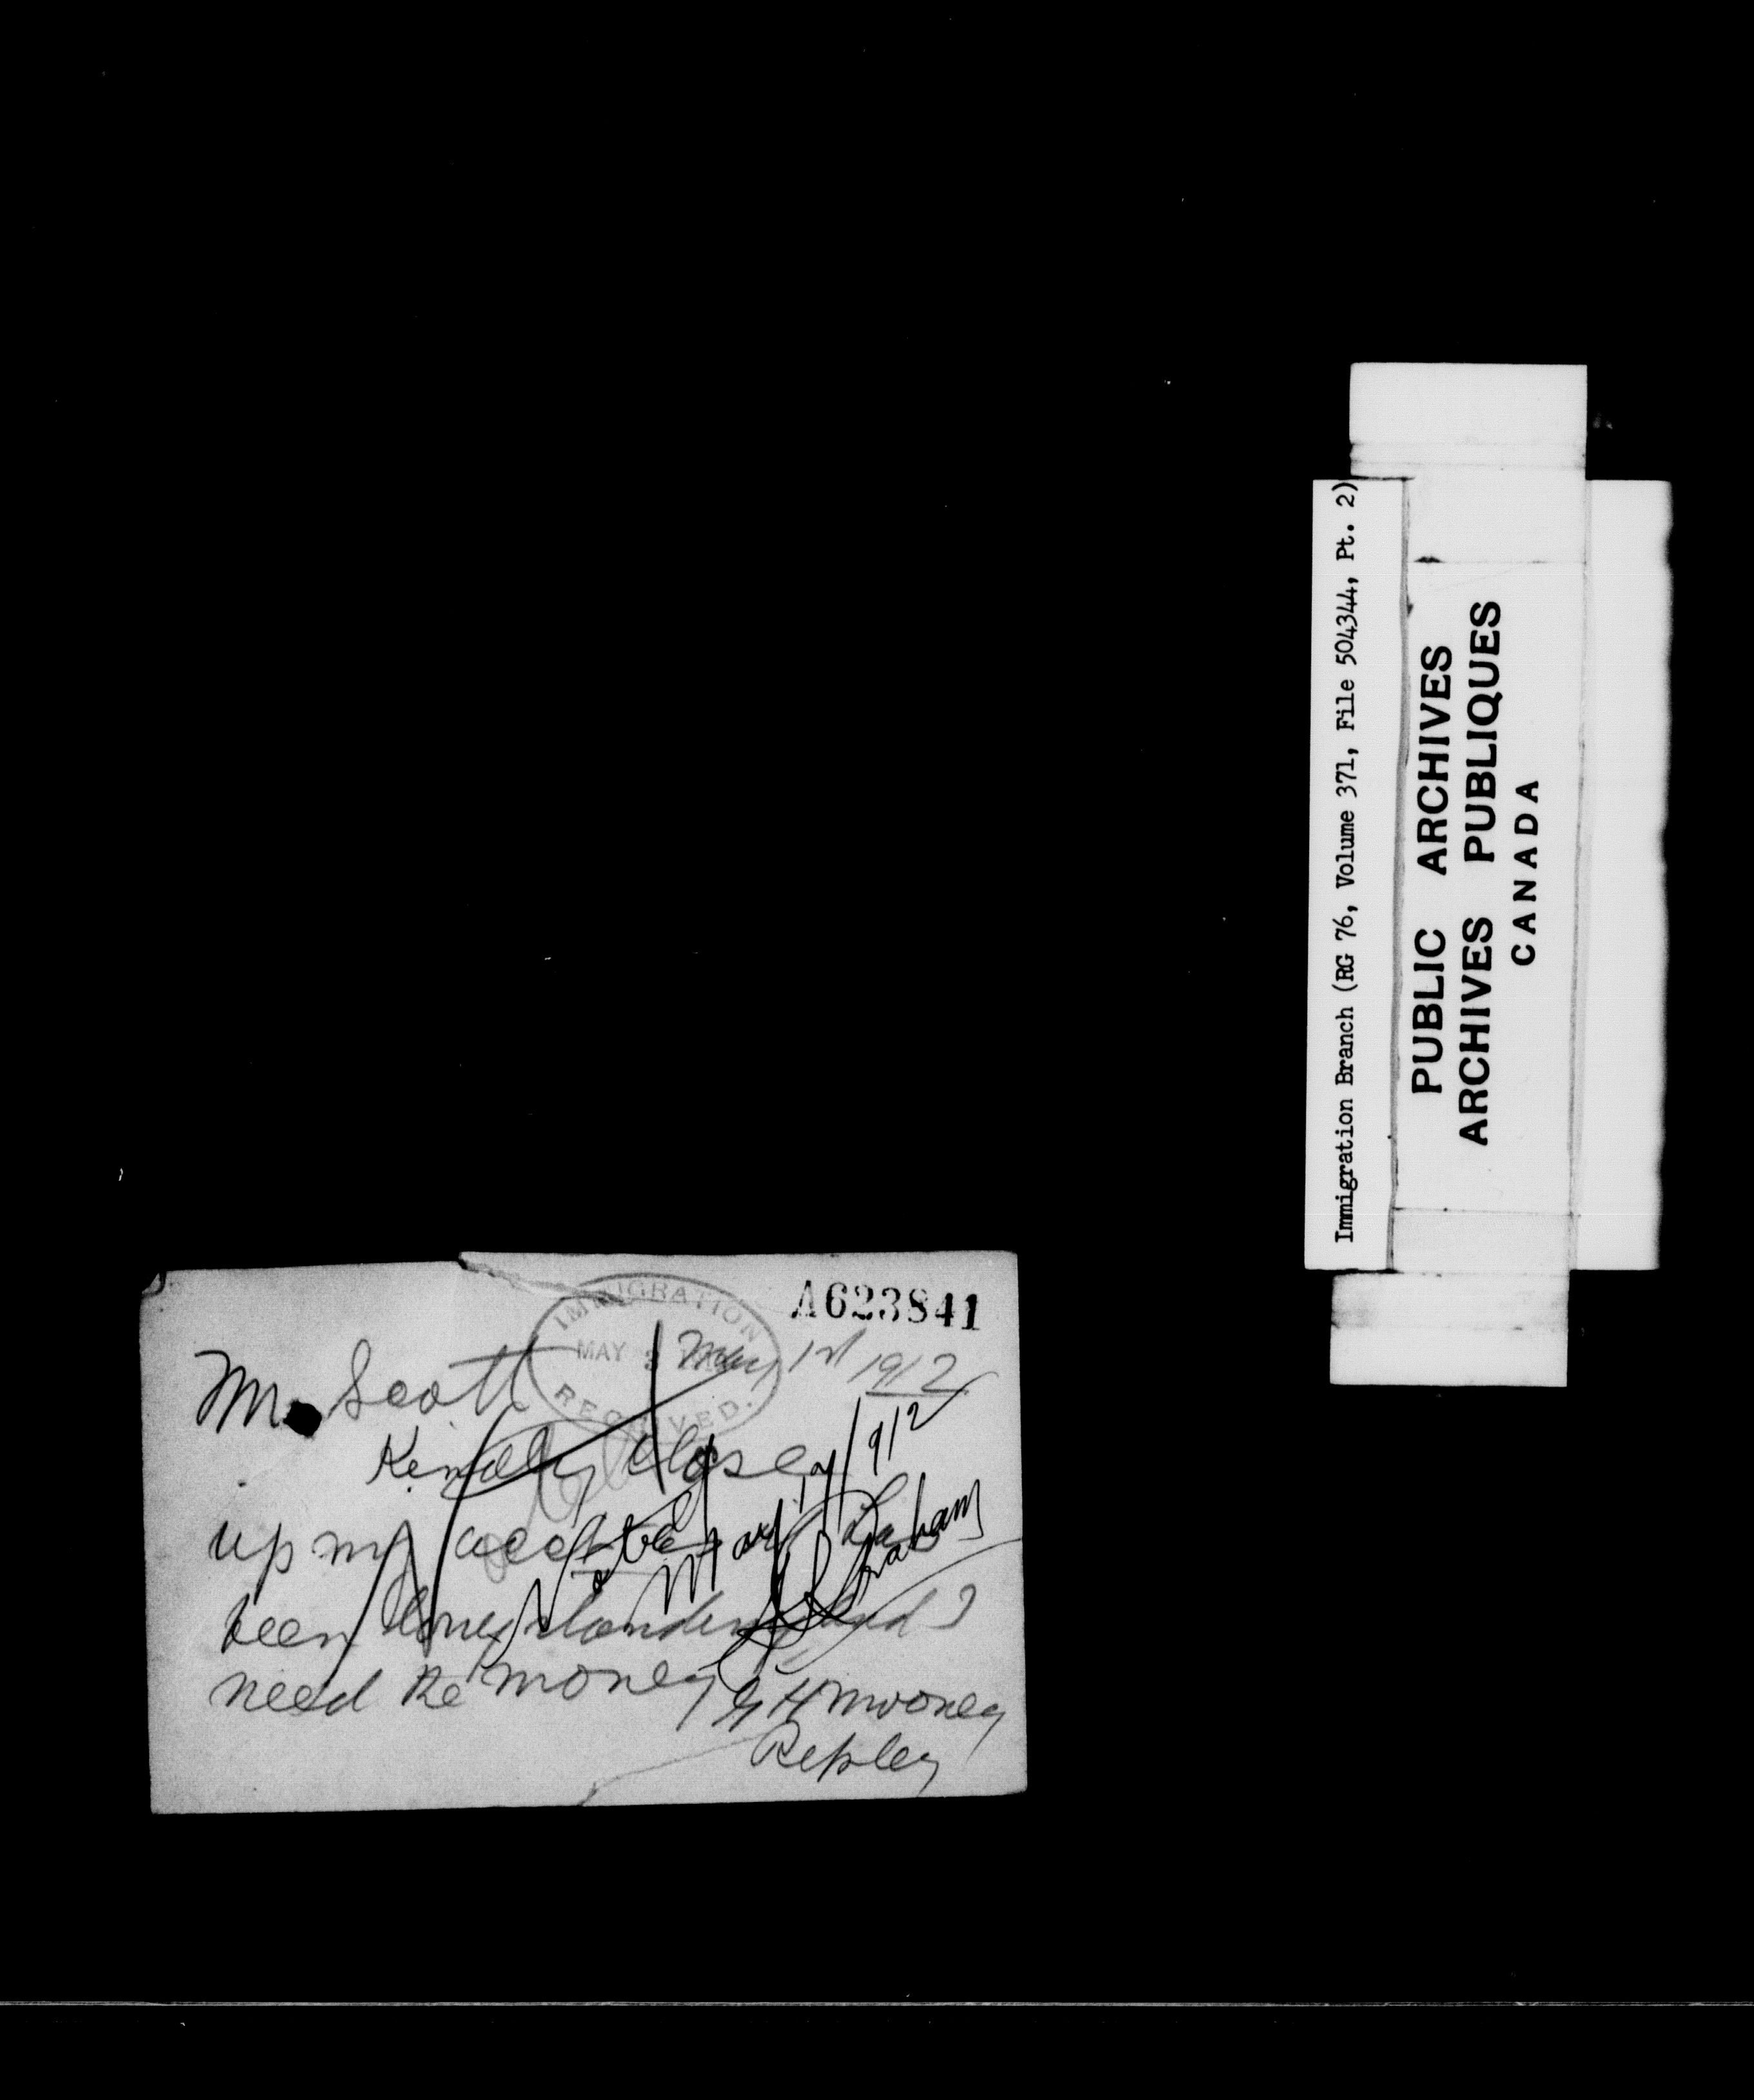 A623841
IMMIGRATION
MAY 3
RECEIVED.
May 1st 1912
Mr Scott
Kindly close
up my acct
been long standing and I
need the money
G H Mooney
Repley
Noted May 17/912
Graham
Immigration Branch (RG 76, Volume 371, File 504344, Pt. 2)
PUBLIC ARCHIVES
ARCHIVES PUBLIQUES
CANADA